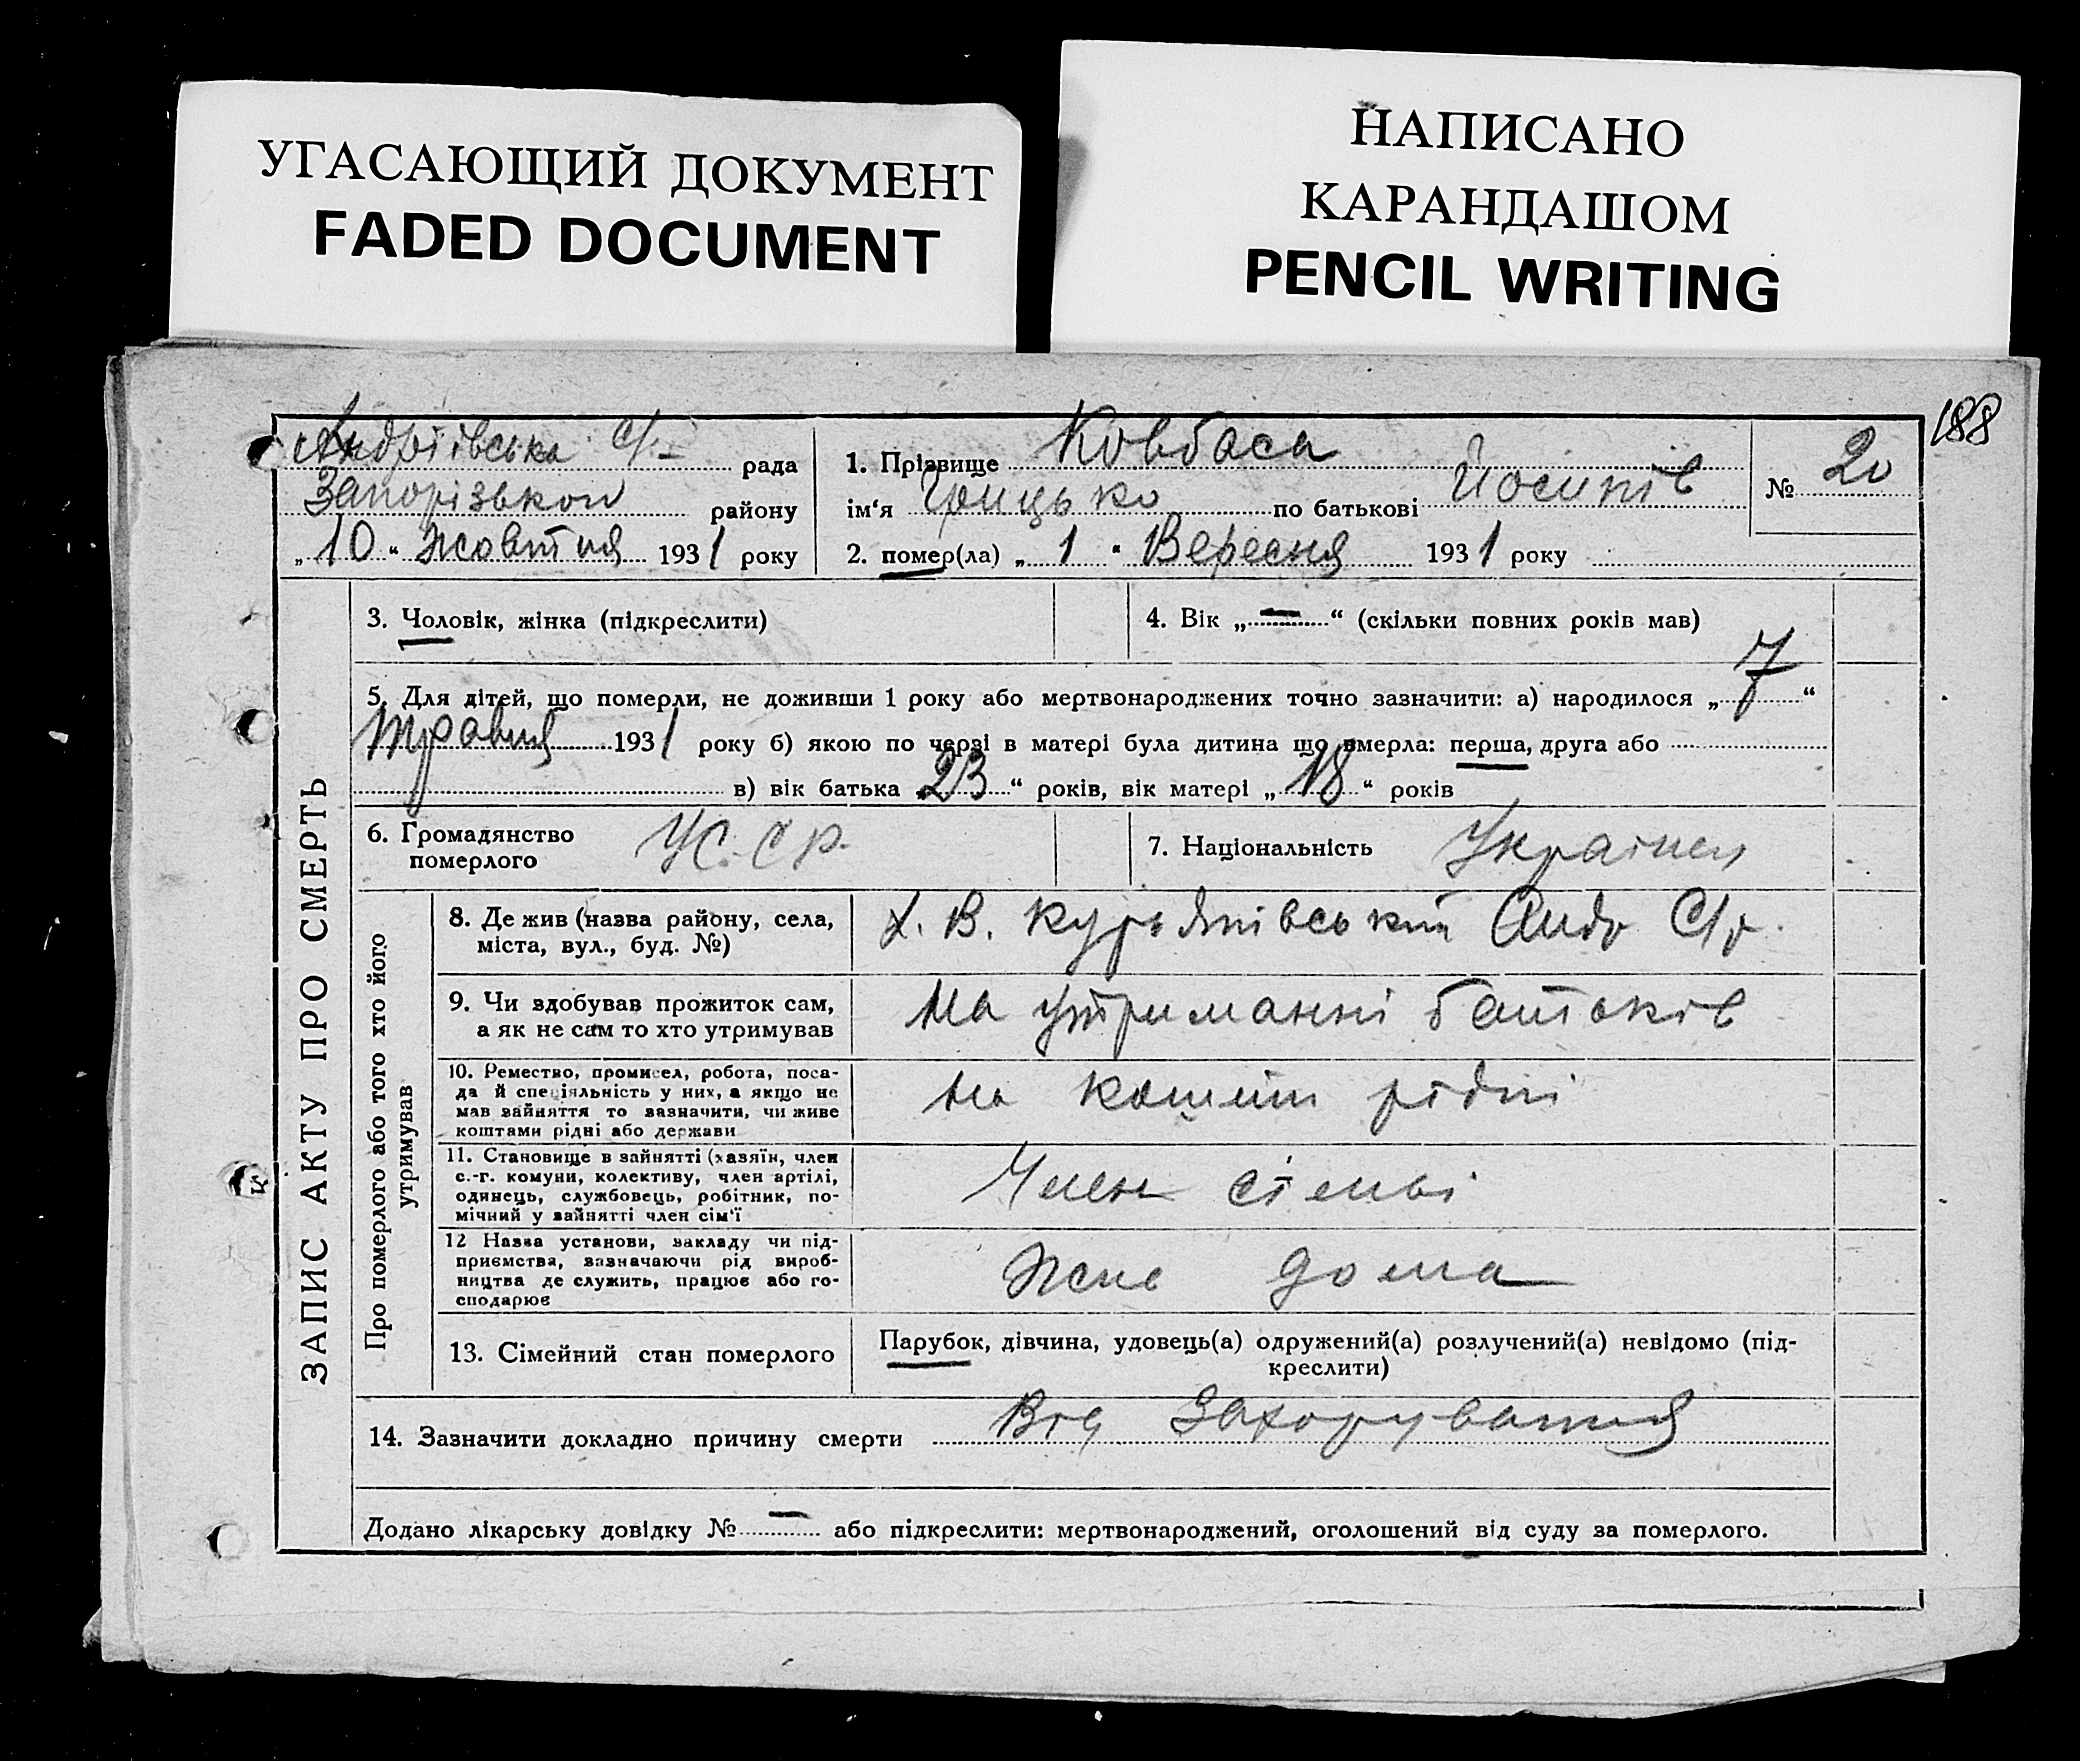 УГАСАЮЩИЙ ДОКУМЕНТ
FADED DOCUMENT
НАПИСАНО
КАРАНДАШОМ
PENCIL WRITING
188
Андріївська С/. рада
Запорізького району
„10“ Жовтня 1931 року
1. Прізвище Ковбаса
ім‘я Грицько по батькові Йосипів
2. помер(ла) „1“ Вересня 1931 року
№ 20
ЗАПИС АКТУ ПРО СМЕРТЬ
3. Чоловік, жінка (підкреслити)
4. Вік „—“ (скільки повних років мав)
5. Для дітей, що померли, не доживши 1 року або мертвонароджених точно зазначити: а) народилося „7“
Травня 1931 року б) якою по черзі в матері була дитина що вмерла: перша, друга або
в) вік батька „23“ років, вік матері „18“ років
6. Громадянство
померлого
УС.СР.
7. Національність
Українец
Про померлого або того хто його
утримував
8. Де жив (назва району, села,
міста, вул., буд. №)
х. В. Андр С/р.
9. Чи здобував прожиток сам,
а як не сам то хто утримував
На утриманні батьків
10. Ремество, промисел, робота, поса-
да й спеціяльність у них, а якщо не
мав зайняття то зазначити, чи живе
коштами рідні або держави
На кошти рідні
11. Становище в зайнятті (хазяїн, член
с.-г. комуни, колективу, член артілі,
одинець, службовець, робітник, по-
мічний у зайнятті член сім‘ї
Член сімьі
12 Назва установи, закладу чи під-
приємства, зазначаючи рід вироб-
ництва де служить, працює або го-
сподарює
дома
13. Сімейний стан померлого
Парубок, дівчина, удовець(а) одружений(а) розлучений(а) невідомо (під-
креслити)
14. Зазначити докладно причину смерти Від Захорування
Додано лікарську довідку № — або підкреслити: мертвонароджений, оголошений від суду за померлого.